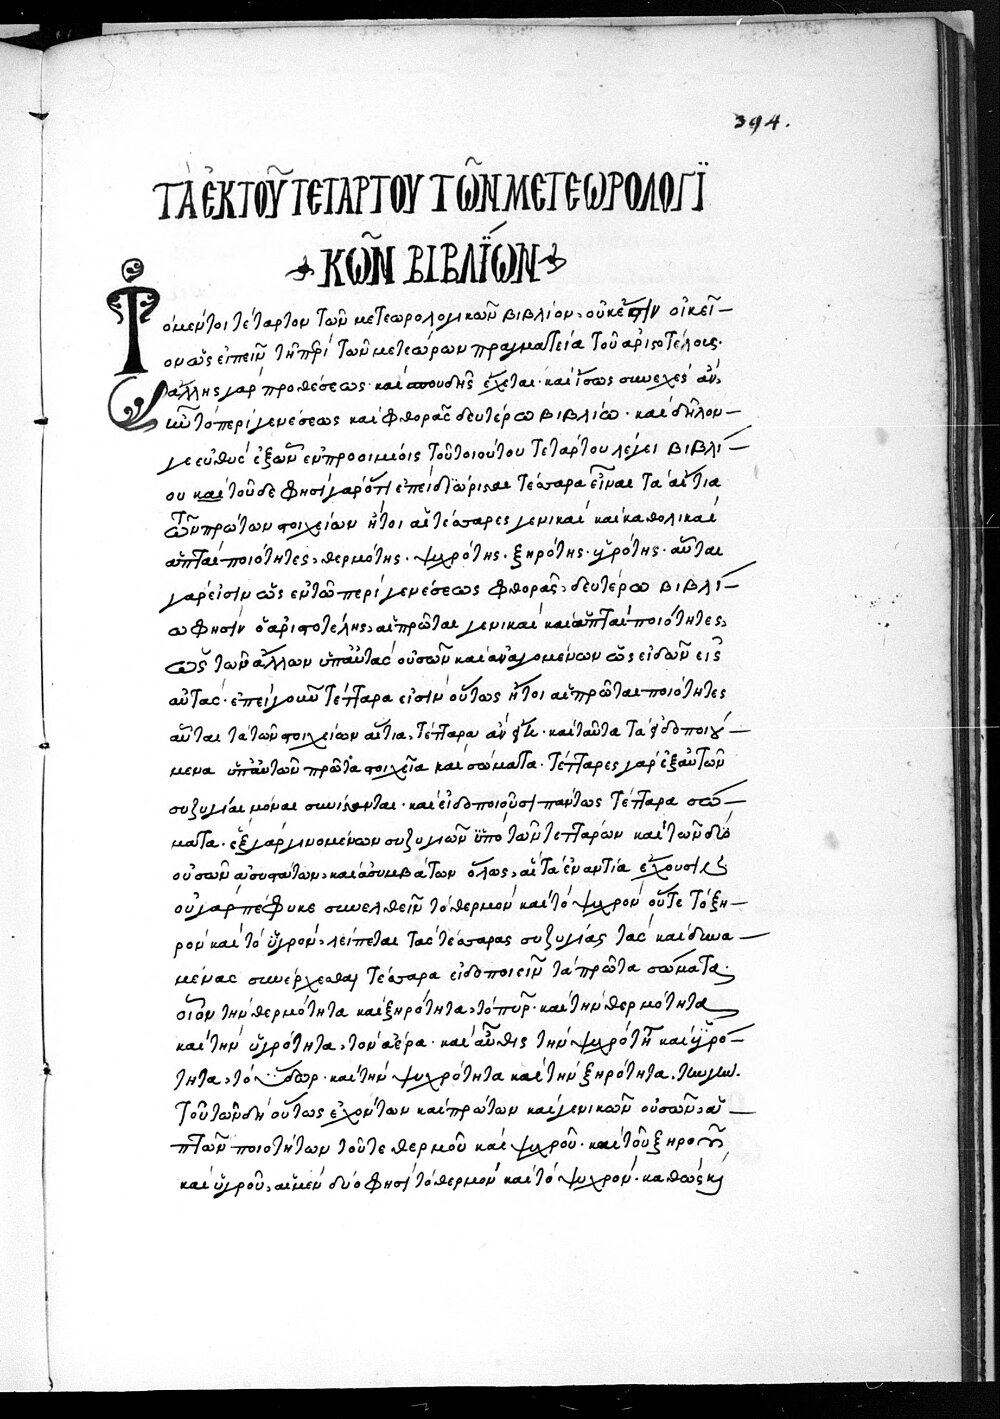 394.
ΤᾺ ἘΚ ΤΟῦ ΤΕΤΆΡΤΟΥ ΤῶΝ ΜΕΤΕΩΡΟΛΟΓΪ
ΚῶΝ ΒΙΒΛΪΩΝ
Τὸ μέντοι τέταρτον τῶν μετεωρολογικῶν βιβλίον, οὐκ ἔστιν οἰκεῖ-
ον ὡς εἰπεῖν τῇ περὶ τῶν μετεώρων πραγματεία τοῦ ἀριστοτέλους·
ἄλλης γὰρ προθέσεως· καὶ σπουδῆς ἔχεται· καὶ ἴσως συνεχὲς ἂν
τὸ περὶ γενέσεως καὶ φθορᾶς δευτέρω βιβλίω· καὶ δῆλον
γε εὐθὺς ἐξ ὧν ἐν προοιμίοις τοῦ τοιούτου τετάρτου λέγει βιβλί-
ου καὶ τοῦδε φησὶ γὰρ ὅτι ἐπεὶ διώρισται τέσσαρα εἶναι τὰ αἴτια
τῶν πρώτων στοιχείων ἤτοι αἱ τέσσαρες γενικαὶ καὶ καθολικαὶ
ἁπταὶ ποιότητες, θερμότης· ψυχρότης· ξηρότης· ὑγρότης· αὗται
γάρ εἰσιν ὡς ἐν τῶ περὶ γενέσεως φθορᾶς, δευτέρω βιβλί-
ω φησὶν ὁ ἀριστοτέλης, αἱ πρῶται γενικαὶ καὶ ἁπταὶ ποιότητες,
ὡς τῶν ἄλλων ὑπ' αὐτὰς οὐσῶν καὶ ἀναγομένων ὡς εἰδῶν εἰς
αὐτάς· ἐπεὶ γοῦν τέτταρα εἰσὶν οὕτως ἤτοι αἱ πρῶται ποιότητες
αὗται τὰ τῶν στοιχείων αἴτια, τέτταρα ἂν εἴη· καὶ ταῦτα τὰ εἰδοποιού-
μενα ὑπ' αὐτῶν πρῶτα στοιχεῖα καὶ σώματα· τέτταρες γὰρ ἐξ αὐτῶν
συζυγίαι μόναι συνίστανται· καὶ εἰδοποιοῦσι πάντως τέτταρα σώ-
ματα· ἓξ γὰρ γινομένων συζυγιῶν ὑπὸ τῶν τεττάρων καὶ τῶν δύο
οὐσῶν ἀσυστάτων, καὶ ἀσυμβάτων ὅλως, αἳ τὰ ἐναντία ἔχουσι
οὐ γὰρ πέφυκε συνελθεῖν τὸ θερμὸν καὶ τὸ ψυχρὸν οὔτε τὸ ξη-
ρὸν καὶ τὸ ὑγρὸν, λείπεται τὰς τέσσαρας συζυγίας τὰς καὶ δυνα-
μένας συνέρχεσθαι τέσσαρα εἰδοποιεῖν τὰ πρῶτα σώματα·
οἷον τὴν θερμότητα καὶ ξηρότητα, τὸ πῦρ· καὶ τὴν θερμότητα
καὶ τὴν ὑγρότητα, τὸν ἀέρα· καὶ αὖθις τὴν ψυχρότητα καὶ ὑγρό-
τητα, τὸ ὕδωρ· καὶ τὴν ψυχρότητα καὶ τὴν ξηρότητα, τὴν γῆν.
τούτων δὴ οὕτως ἐχόντων καὶ πρώτων καὶ γενικῶν οὐσῶν, ἁ-
πτῶν ποιοτήτων τοῦτε θερμοῦ καὶ ψυχροῦ· καὶ τοῦ ξηροῦ
καὶ ὑγροῦ, αἱ μὲν δύο φησὶ τὸ θερμὸν καὶ τὸ ψυχρόν· καθὼς καὶ